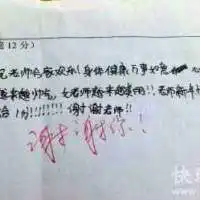 12分)
老师合家欢乐!身体健康万事如意 心
越来越帅气,女老师越来越美丽!!老师新年
给1分!!!!!!!谢谢老师!!
谢谢你!
快